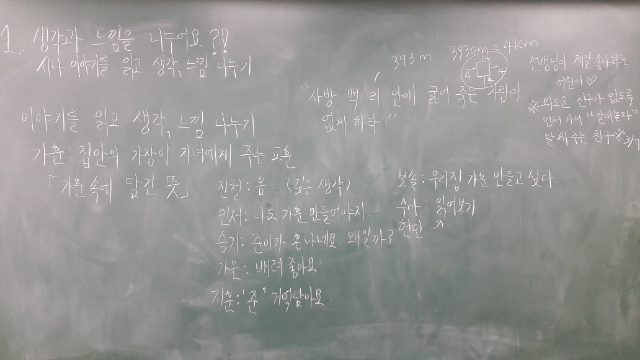 1. 생각과 느낌을 나누어요?!!
시나 이야기를 읽고 생각, 느낌 나누기
이야기를 읽고 생각, 느낌 나누기
가훈 : 집안의 가장이 자녀에게 주는 교훈
「가훈 속에 담긴 뜻」
393m 393m = 4km
"사방 백 리 안에 굶어 죽는 사람이
없게 하라"
진철 : 음 (깊은 생각)
민서 : 나도 가훈 만들어야지.
슥기 : 준이가 혼나네요 왜일까?
가윤 : 배려 좋아요
지훈 : "준" 기억남아요.
보솔 : 우리집 가훈 만들고 싶다
수아 : 읽어보기
연민
선생님이 제일 좋아하는
어린이♡
※ 외로운 친구가 없도록
먼저 가서 "같이놀자"
말해 주는 친구